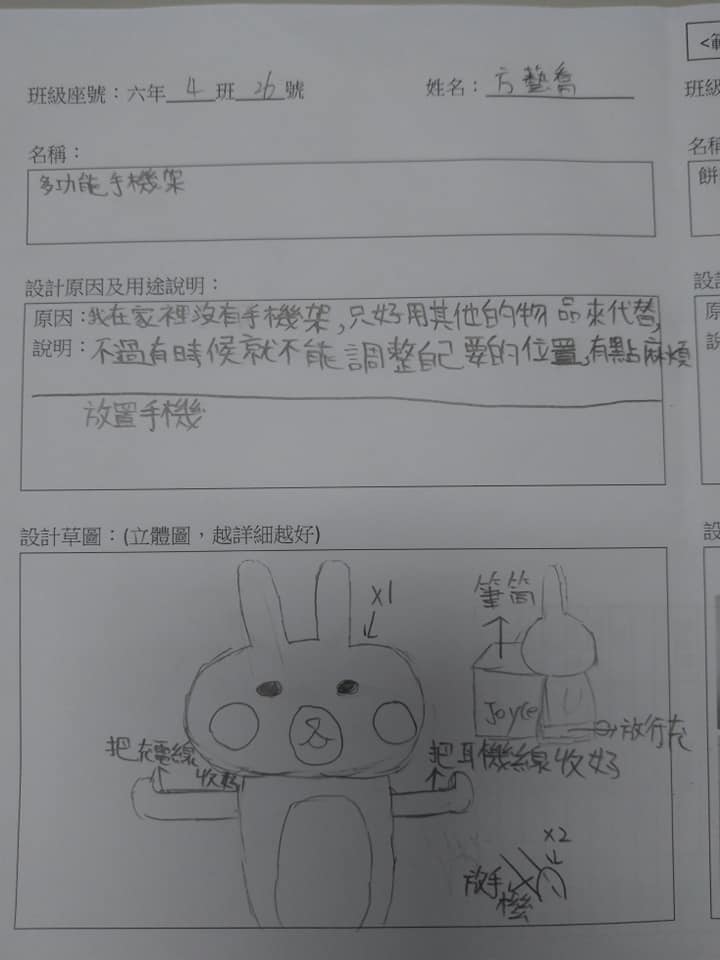 <範
班級座號：六年 4 班 26 號
姓名：方藝喬
班級
名稱：
多功能手機架
名稱
餅
設計原因及用途說明：
原因：我在家裡沒有手機架,只好用其他的物品來代替,
說明：不過有時候就不能調整自己要的位置,有點麻煩
放置手機
設計
原
說
設計草圖：(立體圖，越詳細越好)
設
x1
筆筒
Joyce
放行充
把充電線收好
把耳機線收好
x2
放手機